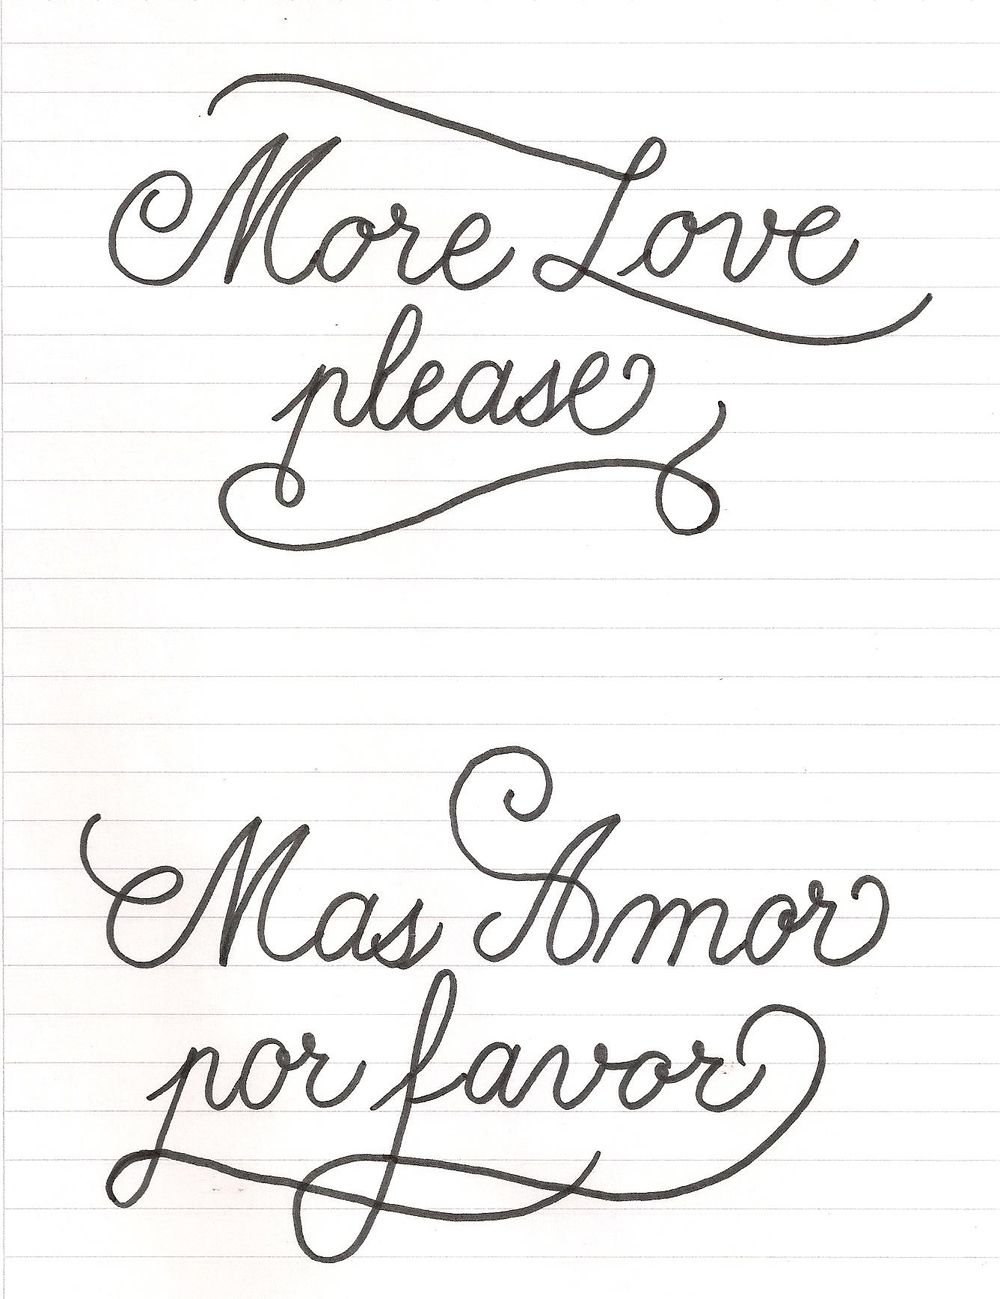 More Love
please
Mas Amor
por favor